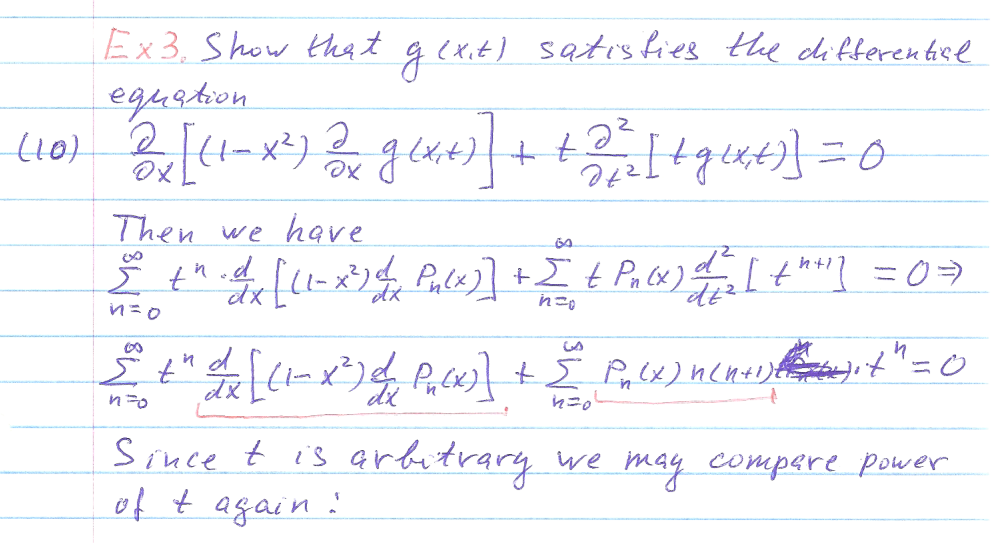 Ex3. Show that g(x,t) satisfies the differential
equation
(10) ∂/∂x [(1-x²) ∂/∂x g(x,t)] + t ∂²/∂t² [t g(x,t)] = 0
Then we have
∑_{n=0}^{∞} tⁿ · d/dx [(1-x²) d/dx Pₙ(x)] + ∑_{n=0}^{∞} t Pₙ(x) d²/dt² [tⁿ⁺¹] = 0 ⇒
∑_{n=0}^{∞} tⁿ d/dx [(1-x²) d/dx Pₙ(x)] + ∑_{n=0}^{∞} Pₙ(x) n(n+1) · tⁿ = 0
Since t is arbitrary we may compare power
of t again :